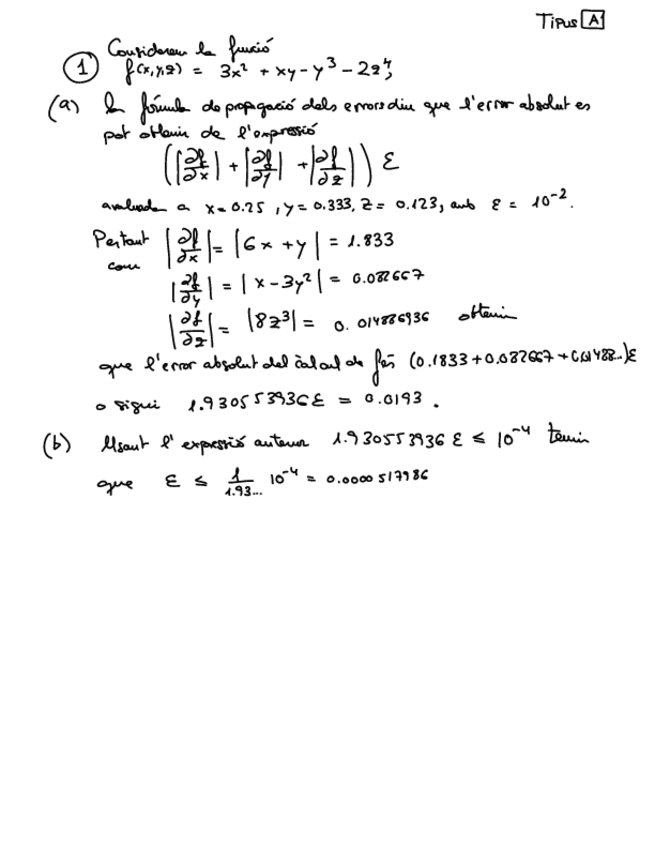 Tipus A
Considerem la funció
1 f(x,y,z) = 3x² + xy - y³ - 2z⁴;
(a) la fórmula de propagació dels errors diu que l'error absolut es
pot obtenir de l'expressió
(|∂f/∂x| + |∂f/∂y| + |∂f/∂z|) ε
avaluada a x = 0.25, y = 0.333, z = 0.123, amb ε = 10⁻².
Per tant |∂f/∂x| = |6x + y| = 1.833
com
|∂f/∂y| = |x - 3y²| = 0.082667
|∂f/∂z| = |8z³| = 0.014886936 obtenim
que l'error absolut del càlcul de f és (0.1833 + 0.082667 + 0.01488..)ε
o sigui 1.930553936 ε = 0.0193.
(b) Usant l'expressió anterior 1.930553936 ε ≤ 10⁻⁴ tenim
que ε ≤ 1/1.93... 10⁻⁴ = 0.0000517986